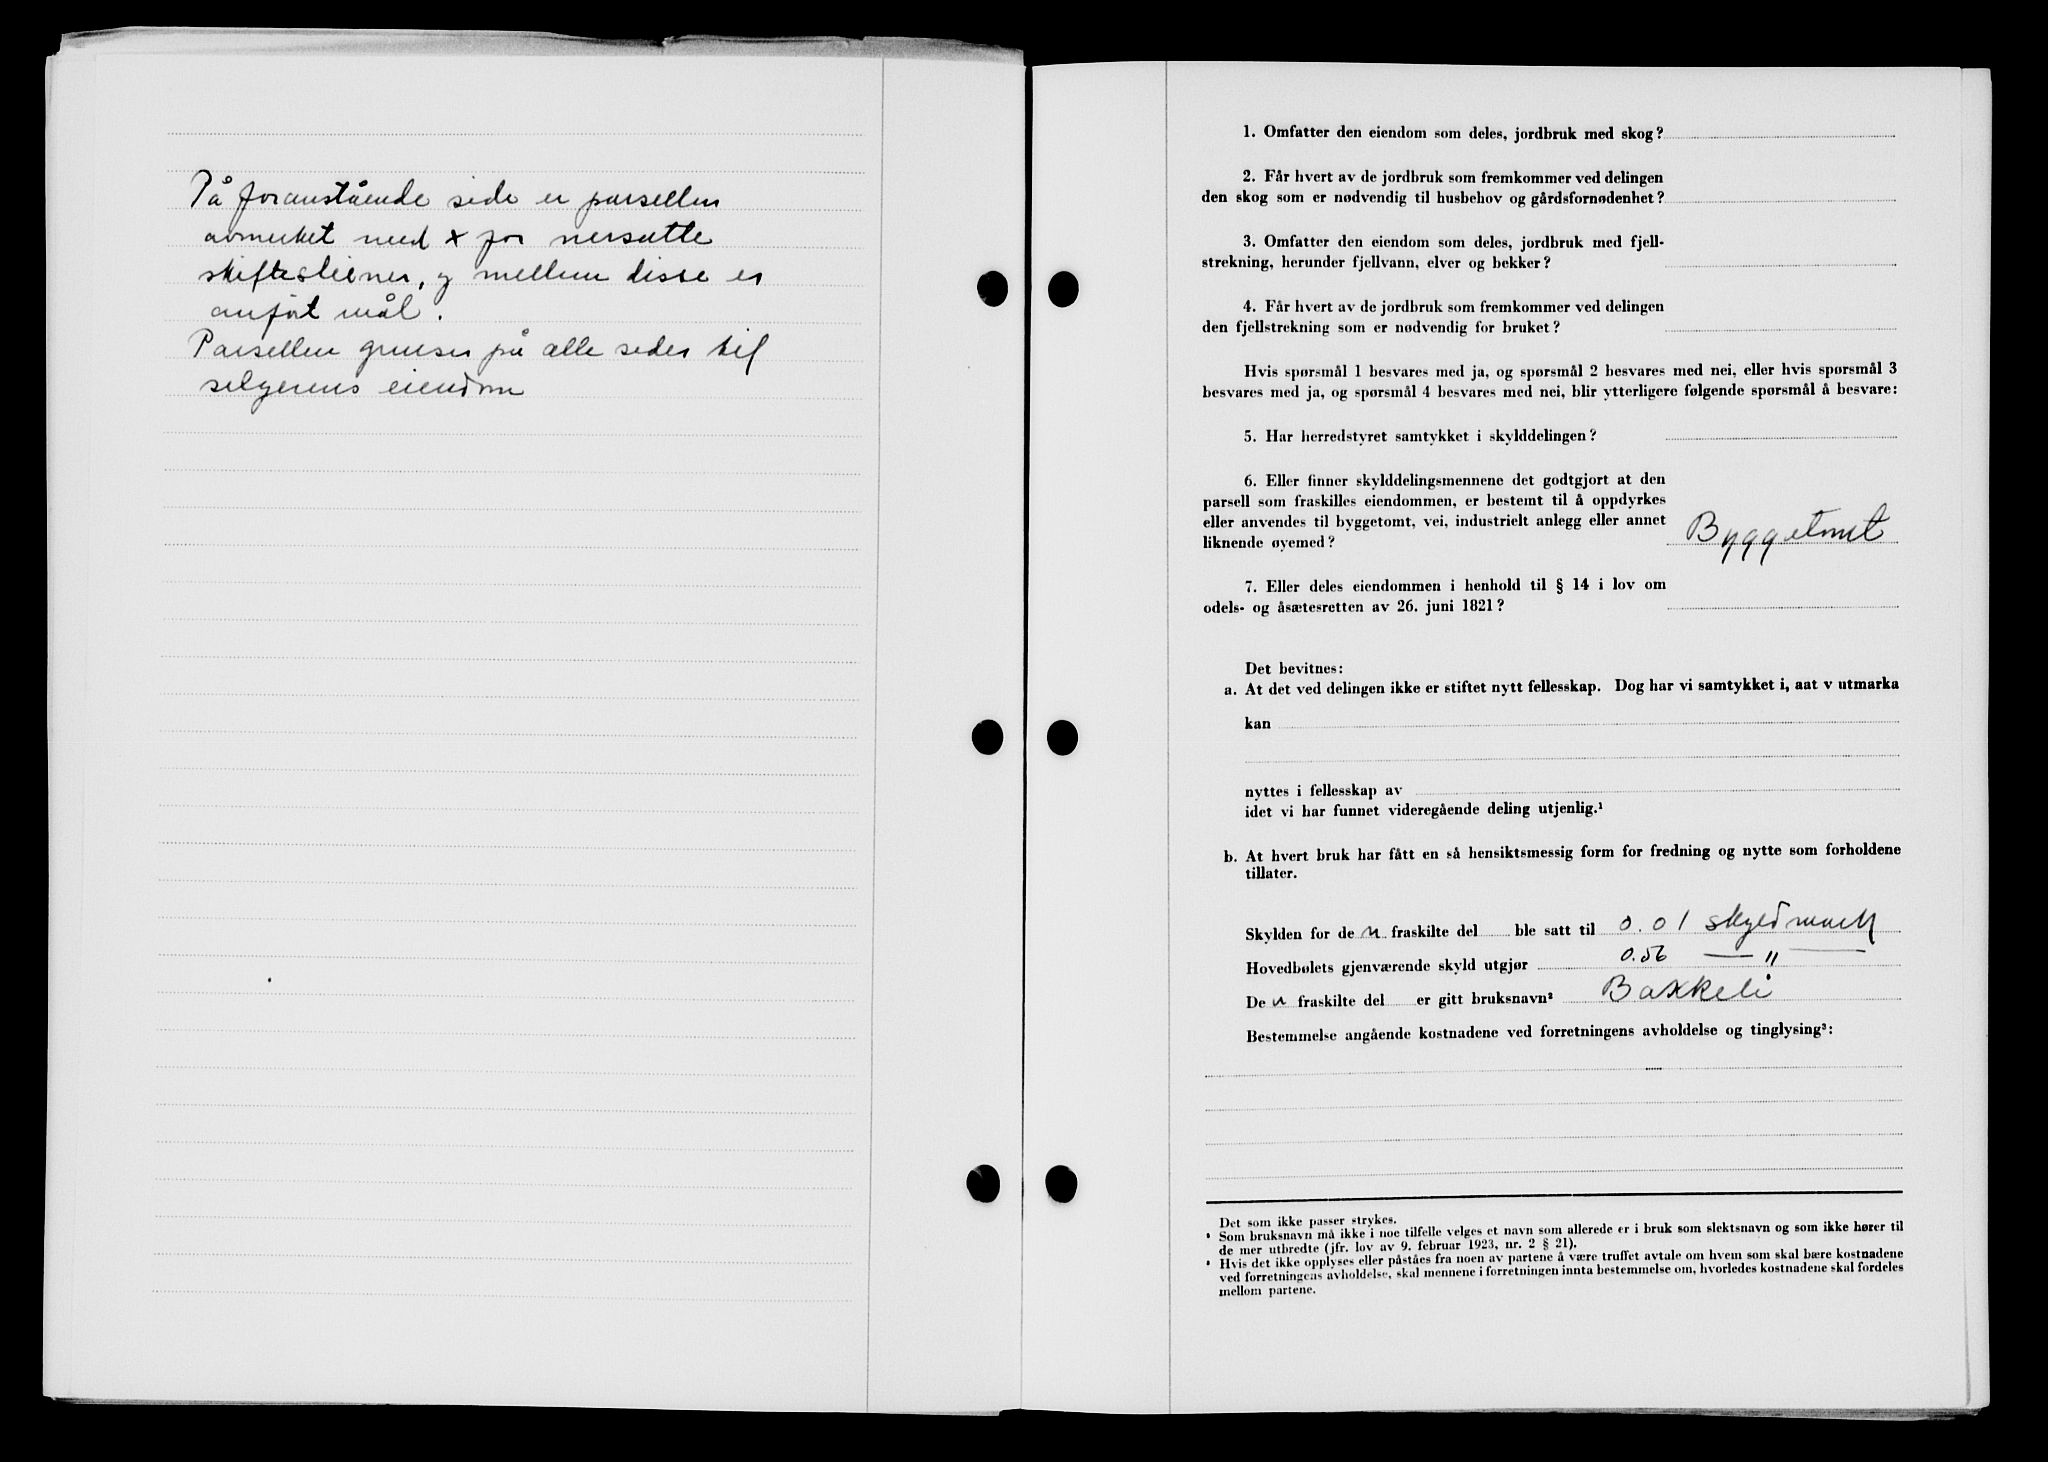 På foranstående side er parsellen
avmerket med x for nersatte
skiftesteiner, og mellem disse er
anført mål.
Parsellen grenser på alle sider til
selgerens eiendom
1. Omfatter den eiendom som deles, jordbruk med skog?
2. Får hvert av de jordbruk som fremkommer ved delingen
den skog som er nødvendig til husbehov og gårdsfornødenhet?
3. Omfatter den eiendom som deles, jordbruk med fjell-
strekning, herunder fjellvann, elver og bekker?
4. Får hvert av de jordbruk som fremkommer ved delingen
den fjellstrekning som er nødvendig for bruket?
Hvis spørsmål 1 besvares med ja, og spørsmål 2 besvares med nei, eller hvis spørsmål 3
besvares med ja, og spørsmål 4 besvares med nei, blir ytterligere følgende spørsmål å besvare:
5. Har herredstyret samtykket i skylddelingen?
6. Eller finner skylddelingsmennene det godtgjort at den
parsell som fraskilles eiendommen, er bestemt til å oppdyrkes
eller anvendes til byggetomt, vei, industrielt anlegg eller annet
liknende øyemed? Byggetomt
7. Eller deles eiendommen i henhold til § 14 i lov om
odels- og åsætesretten av 26. juni 1821?
Det bevitnes:
a. At det ved delingen ikke er stiftet nytt fellesskap. Dog har vi samtykket i, aat v utmarka
kan
nyttes i fellesskap av
idet vi har funnet videregående deling utjenlig.¹
b. At hvert bruk har fått en så hensiktsmessig form for fredning og nytte som forholdene
tillater.
Skylden for de n fraskilte del ble satt til 0.01 skyldmark
Hovedbølets gjenværende skyld utgjør 0.56 — " —
De n fraskilte del er gitt bruksnavn² Bakkeli
Bestemmelse angående kostnadene ved forretningens avholdelse og tinglysing³:
Det som ikke passer strykes.
Som bruksnavn må ikke i noe tilfelle velges et navn som allerede er i bruk som slektsnavn og som ikke hører til
de mer utbredte (jfr. lov av 9. februar 1923, nr. 2 § 21).
Hvis det ikke opplyses eller påståes fra noen av partene å være truffet avtale om hvem som skal bære kostnadene
ved forretningens avholdelse, skal mennene i forretningen innta bestemmelse om, hvorledes kostnadene skal fordeles
mellom partene.